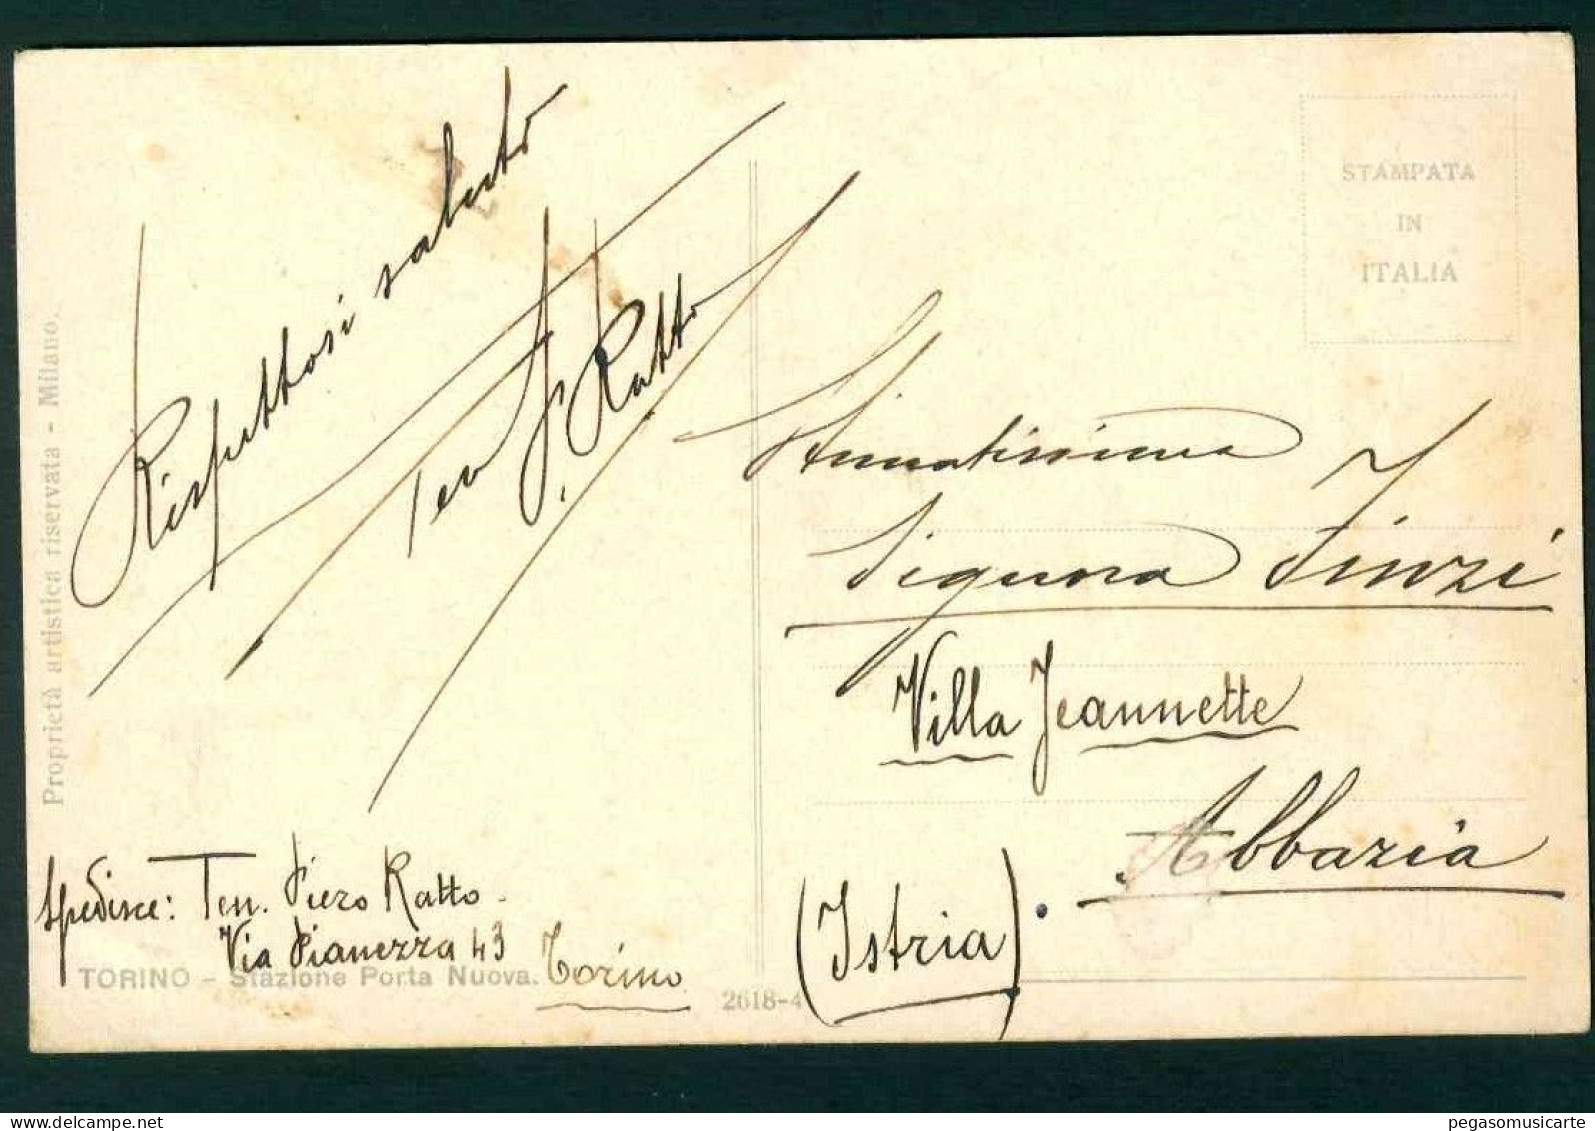 Rispettosi saluti
Ten P. Ratto
Spedisce: Ten. Piero Ratto.
Via Pianezza 43
Torino
Stimatissima
Signora Finzi
Villa Jeannette
Abbazia
(Istria)
STAMPATA
IN
ITALIA
Proprietà artistica riservata - Milano.
TORINO - Stazione Porta Nuova.
2618-4
pegasomusicarte